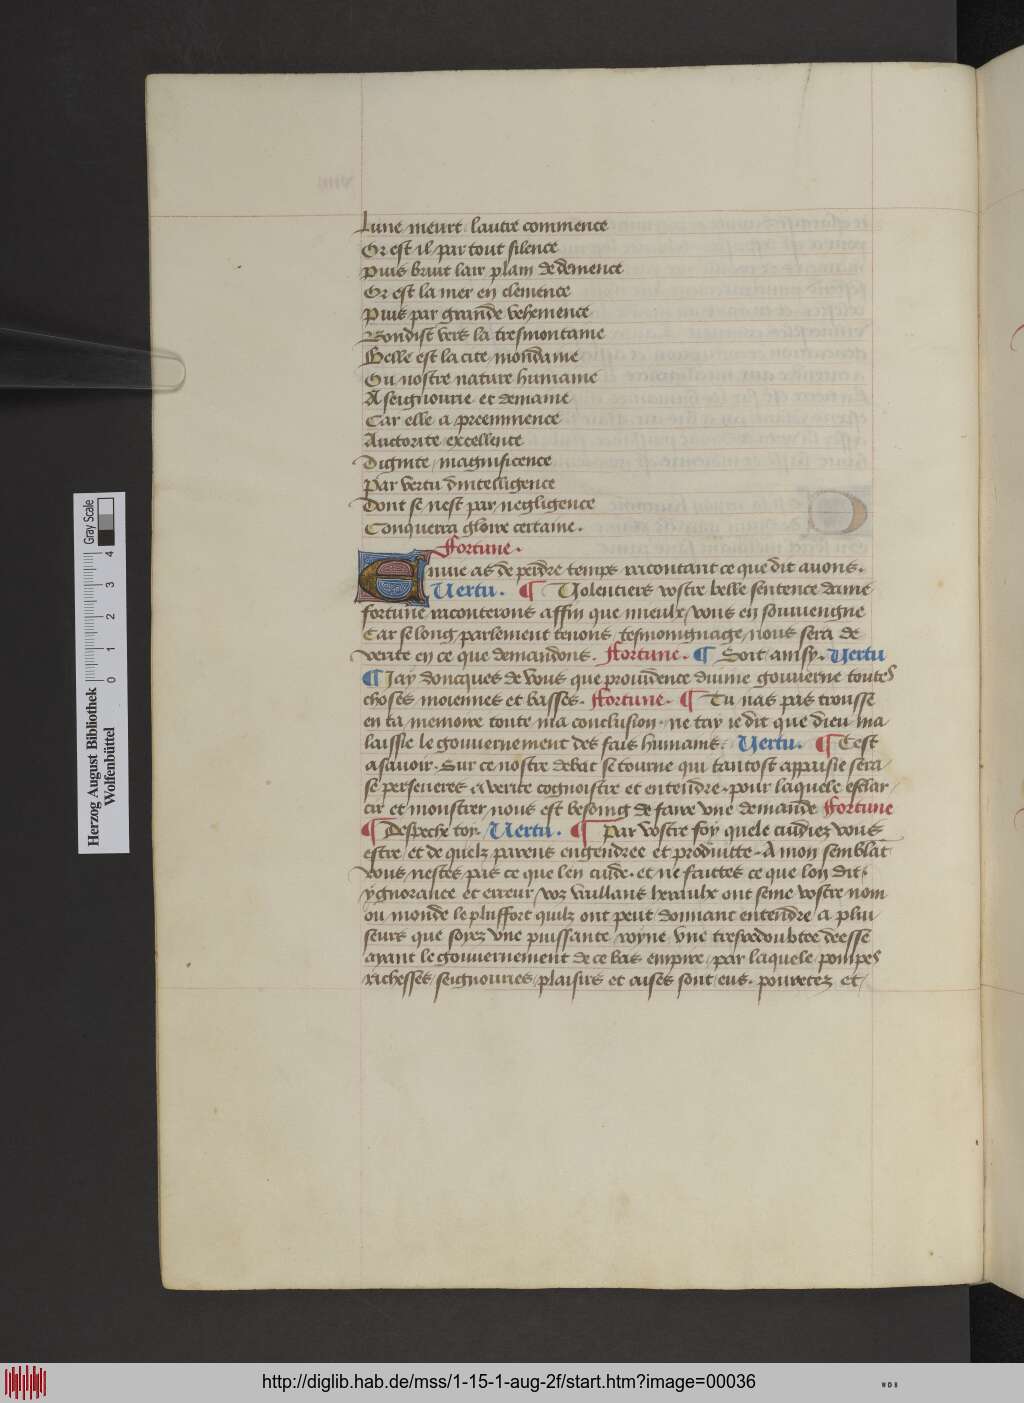 Lune meurt lautre commence
Or est il par tout silence
Puis bruit lair plain de demence
Or est la mer en clemence
Puis par grande vehemence
Bondist vers la tresmontaine
Belle est la cite mondaine
Ou nostre nature humaine
A seignourie et demaine
Car elle a preeminence
Auctorite excellence
Dignite magnificence
Par vertu dintelligence
Dont se nest par negligence
Conquerra gloire certaine.
Fortune.
Enuie as de perdre temps racontant ce que dit auons.
Vertu. ¶ Volentiers vostre belle sentence dame
fortune raconterons affin que mieulx vous en souuiengne
Car se long parlement tenons tesmoingnage nous sera de
verite en ce que demandons. Fortune. ¶ Soit ainsy. Vertu
¶ Jay doncques de vous que prouidence diuine gouuerne toutes
choses moiennes et basses. Fortune. ¶ Tu nas pas trousse
en ta memoire toute ma conclusion. ne tay ie dit que dieu ma
laissie le gouuernement des fais humains. Vertu. ¶ Cest
asauoir. Sur ce nostre debat se tourne qui tantost appaisie sera
se perseueres a verite cognoistre et entendre. pour laquele esclar
cir et monstrer nous est besoing de faire vne demande Fortune
¶ Despeche toy. Vertu. ¶ Par vostre foy quele cuidiez vous
estre et de quelz parens engendree et produitte. A mon semblāt
vous nestes pas ce que len cuide. et ne faittes ce que lon dit.
ygnorance et erreur voz vaillans heraulx ont seme vostre nom
ou monde le plusfort quilz ont peut donnant entendre a plui
seurs que soyez vne puissante royne vne tresredoubtee deesse
ayant le gouuernement de ce bas empire par laquele pompes
richesses seignouries plaisirs et aises sont eus. pouretez et
Herzog August Bibliothek
Wolfenbüttel
0 1 2 3 4
Gray Scale
http://diglib.hab.de/mss/1-15-1-aug-2f/start.htm?image=00036
WDB